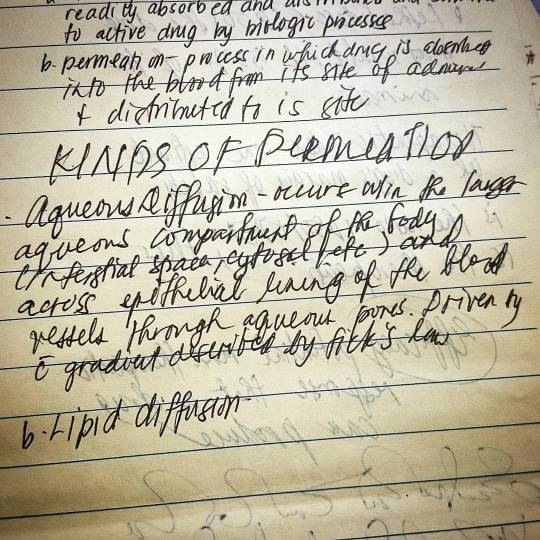 readily absorbed and distributed and
to active drug by biologic processes
b. permeation - process in which drug is absorbed
into the blood from its site of
& distributed to is site
KINDS OF PERMEATION
. Aqueous Diffusion - occurs w/in the larger
aqueous compartment of the body
(interstial space, cytosol, etc) and
across epothelial lining of the blood
vessels through aqueous pores. Driven by
c gradient described by fick's law
b. Lipid diffusion-